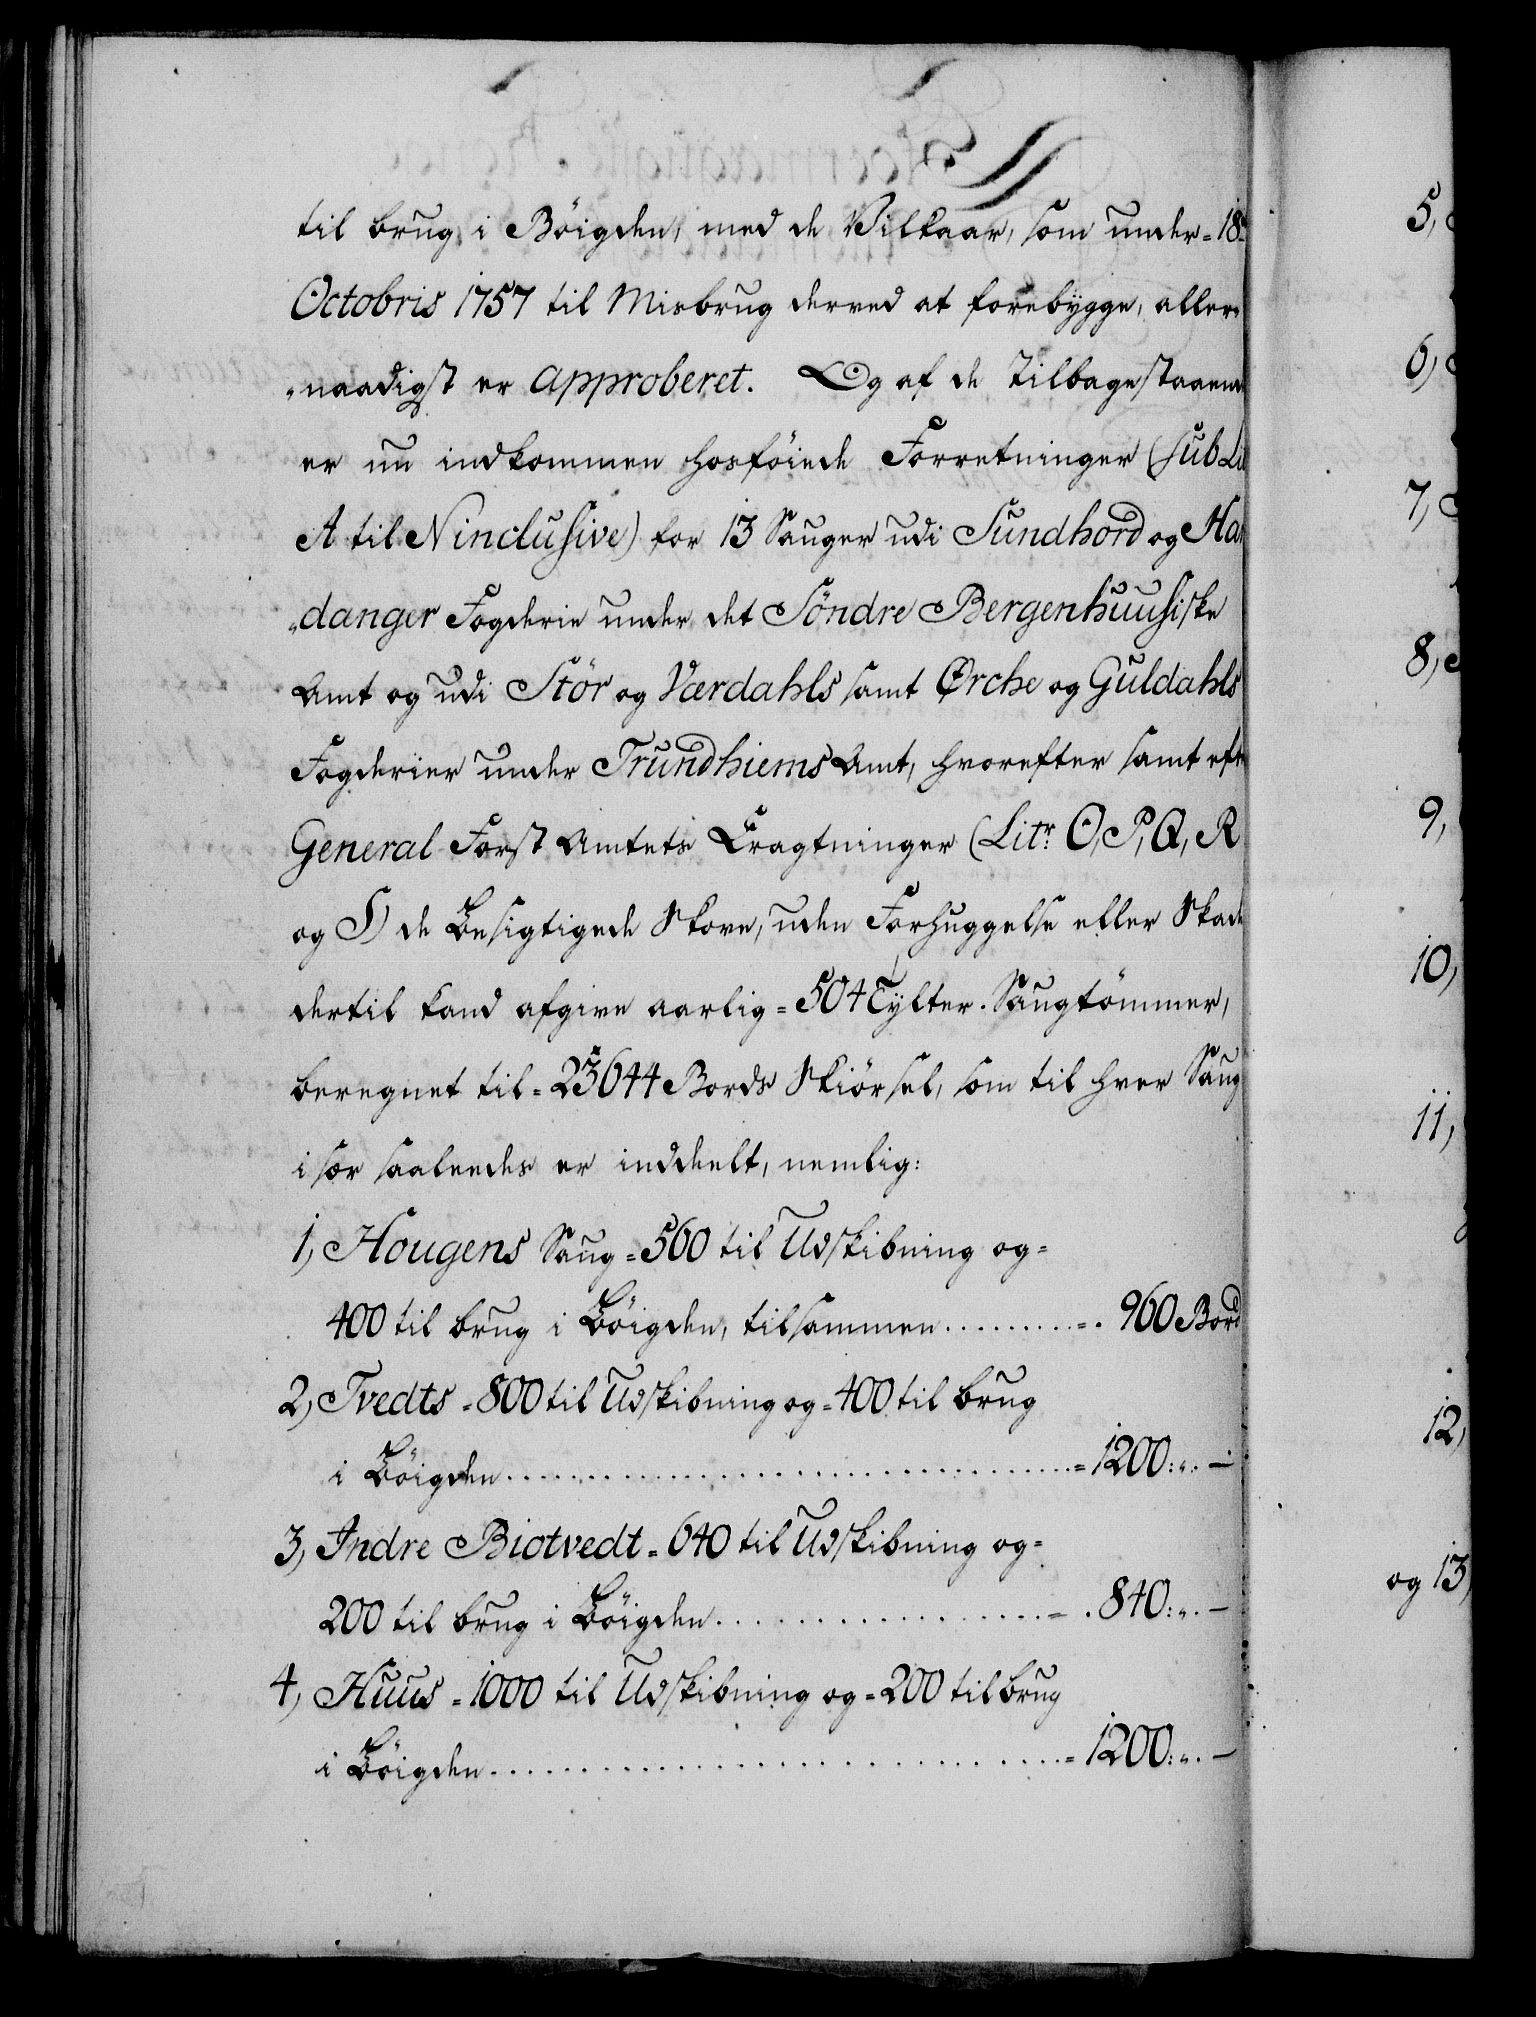 til brug i Böigden, med de Vilkaar, som under = 18de
Octobris 1757 til Misbrug derved at forebygge, aller=
=naadigst er approberet. Og af de Tilbagestaaende
er nu indkommen hosföiede Forretninger (sub Lit
A til N inclusive) for 13 Sauger udi Sundhord og Har
=danger Fogderie under det Söndre Bergenhuusiske
Amt og udi Stör og Værdahls samt Ørche og Guldahls
Fogderier under Trundhiems Amt, hvorefter samt efter
General Forst Amtets Eragtninger (Litr: O, P, Q, R
og S) de Besigtigede Skove, uden Forhuggelse eller Skade
dertil kand afgive aarlig = 504 Tylter Saugtömmer,
beregnet til = 23644 Bords Skiörsel, som til hver Saug
i sær saaledes er inddeelt, nemlig:
1, Hougens Saug = 560 til Udskibning og =
400 til brug i Böigden, tilsammen ......... = . 960 Bord
2, Tvedts = 800 til Udskibning og = 400 til brug
i Böigden ................................ = 1200 : „ . —
3, Indre Biotvedt = 640 til Udskibning og =
200 til brug i Böigden .................. = . 840 : „ . —
4, Huus = 1000 til Udskibning og = 200 til brug
i Böigden ................................ = 1200 : „ . —
5,
6,
7,
8,
9,
10,
11,
12,
og 13,